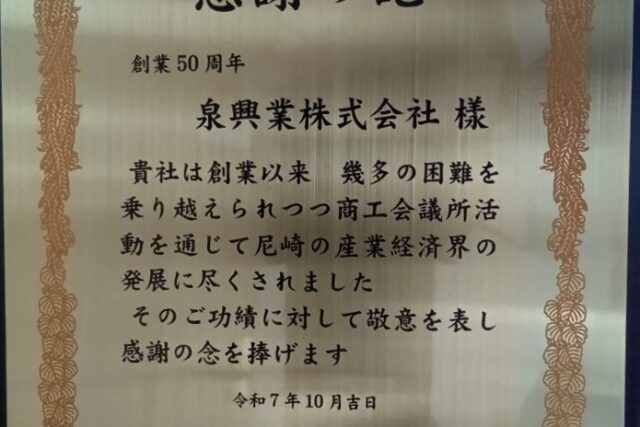 創業50周年
泉興業株式会社 様
貴社は創業以来 幾多の困難を
乗り越えられつつ商工会議所活
動を通じて尼崎の産業経済界の
発展に尽くされました
そのご功績に対して敬意を表し
感謝の念を捧げます
令和7年10月吉日